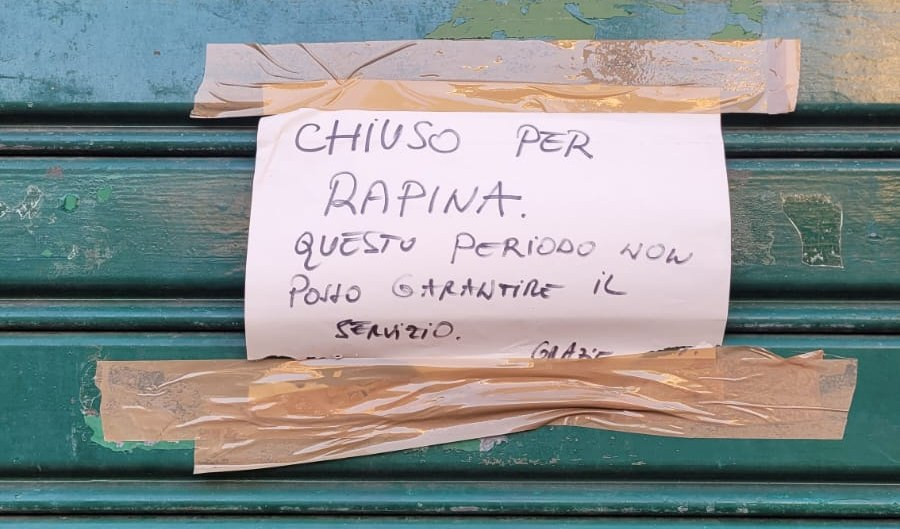 CHIUSO PER
RAPINA.
QUESTO PERIODO NON
POSSO GARANTIRE IL
SERVIZIO.
GRAZIE